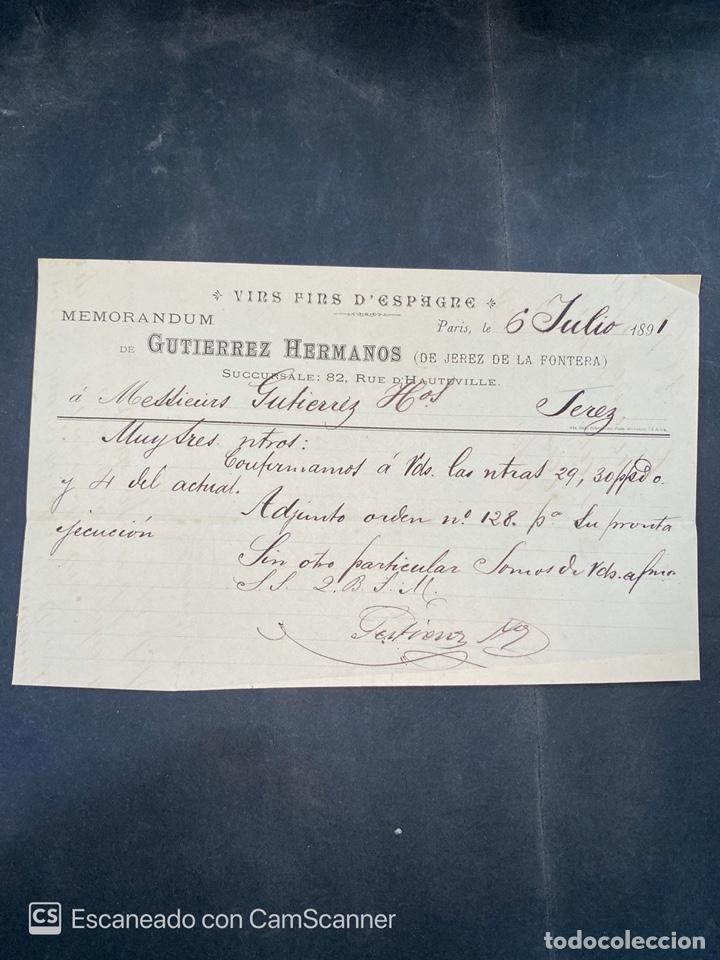 VINS FINS D'ESPAGNE
MEMORANDUM
Paris, le 6 Julio 1891
DE GUTIERREZ HERMANOS (DE JEREZ DE LA FONTERA)
SUCCURSALE: 82, RUE D'HAUTEVILLE.
á Messieurs Gutierrez Hos Jerez
Muy sres ntros:
Confirmamos á Vds. las ntras 29, 30 ppdo.
y 4 del actual.
Adjunto orden nº 128. pa su pronta
ejecución
Sin otro particular Somos de Vds. afmos
S. S. Q. B. S. M.
CS Escaneado con CamScanner
todocoleccion